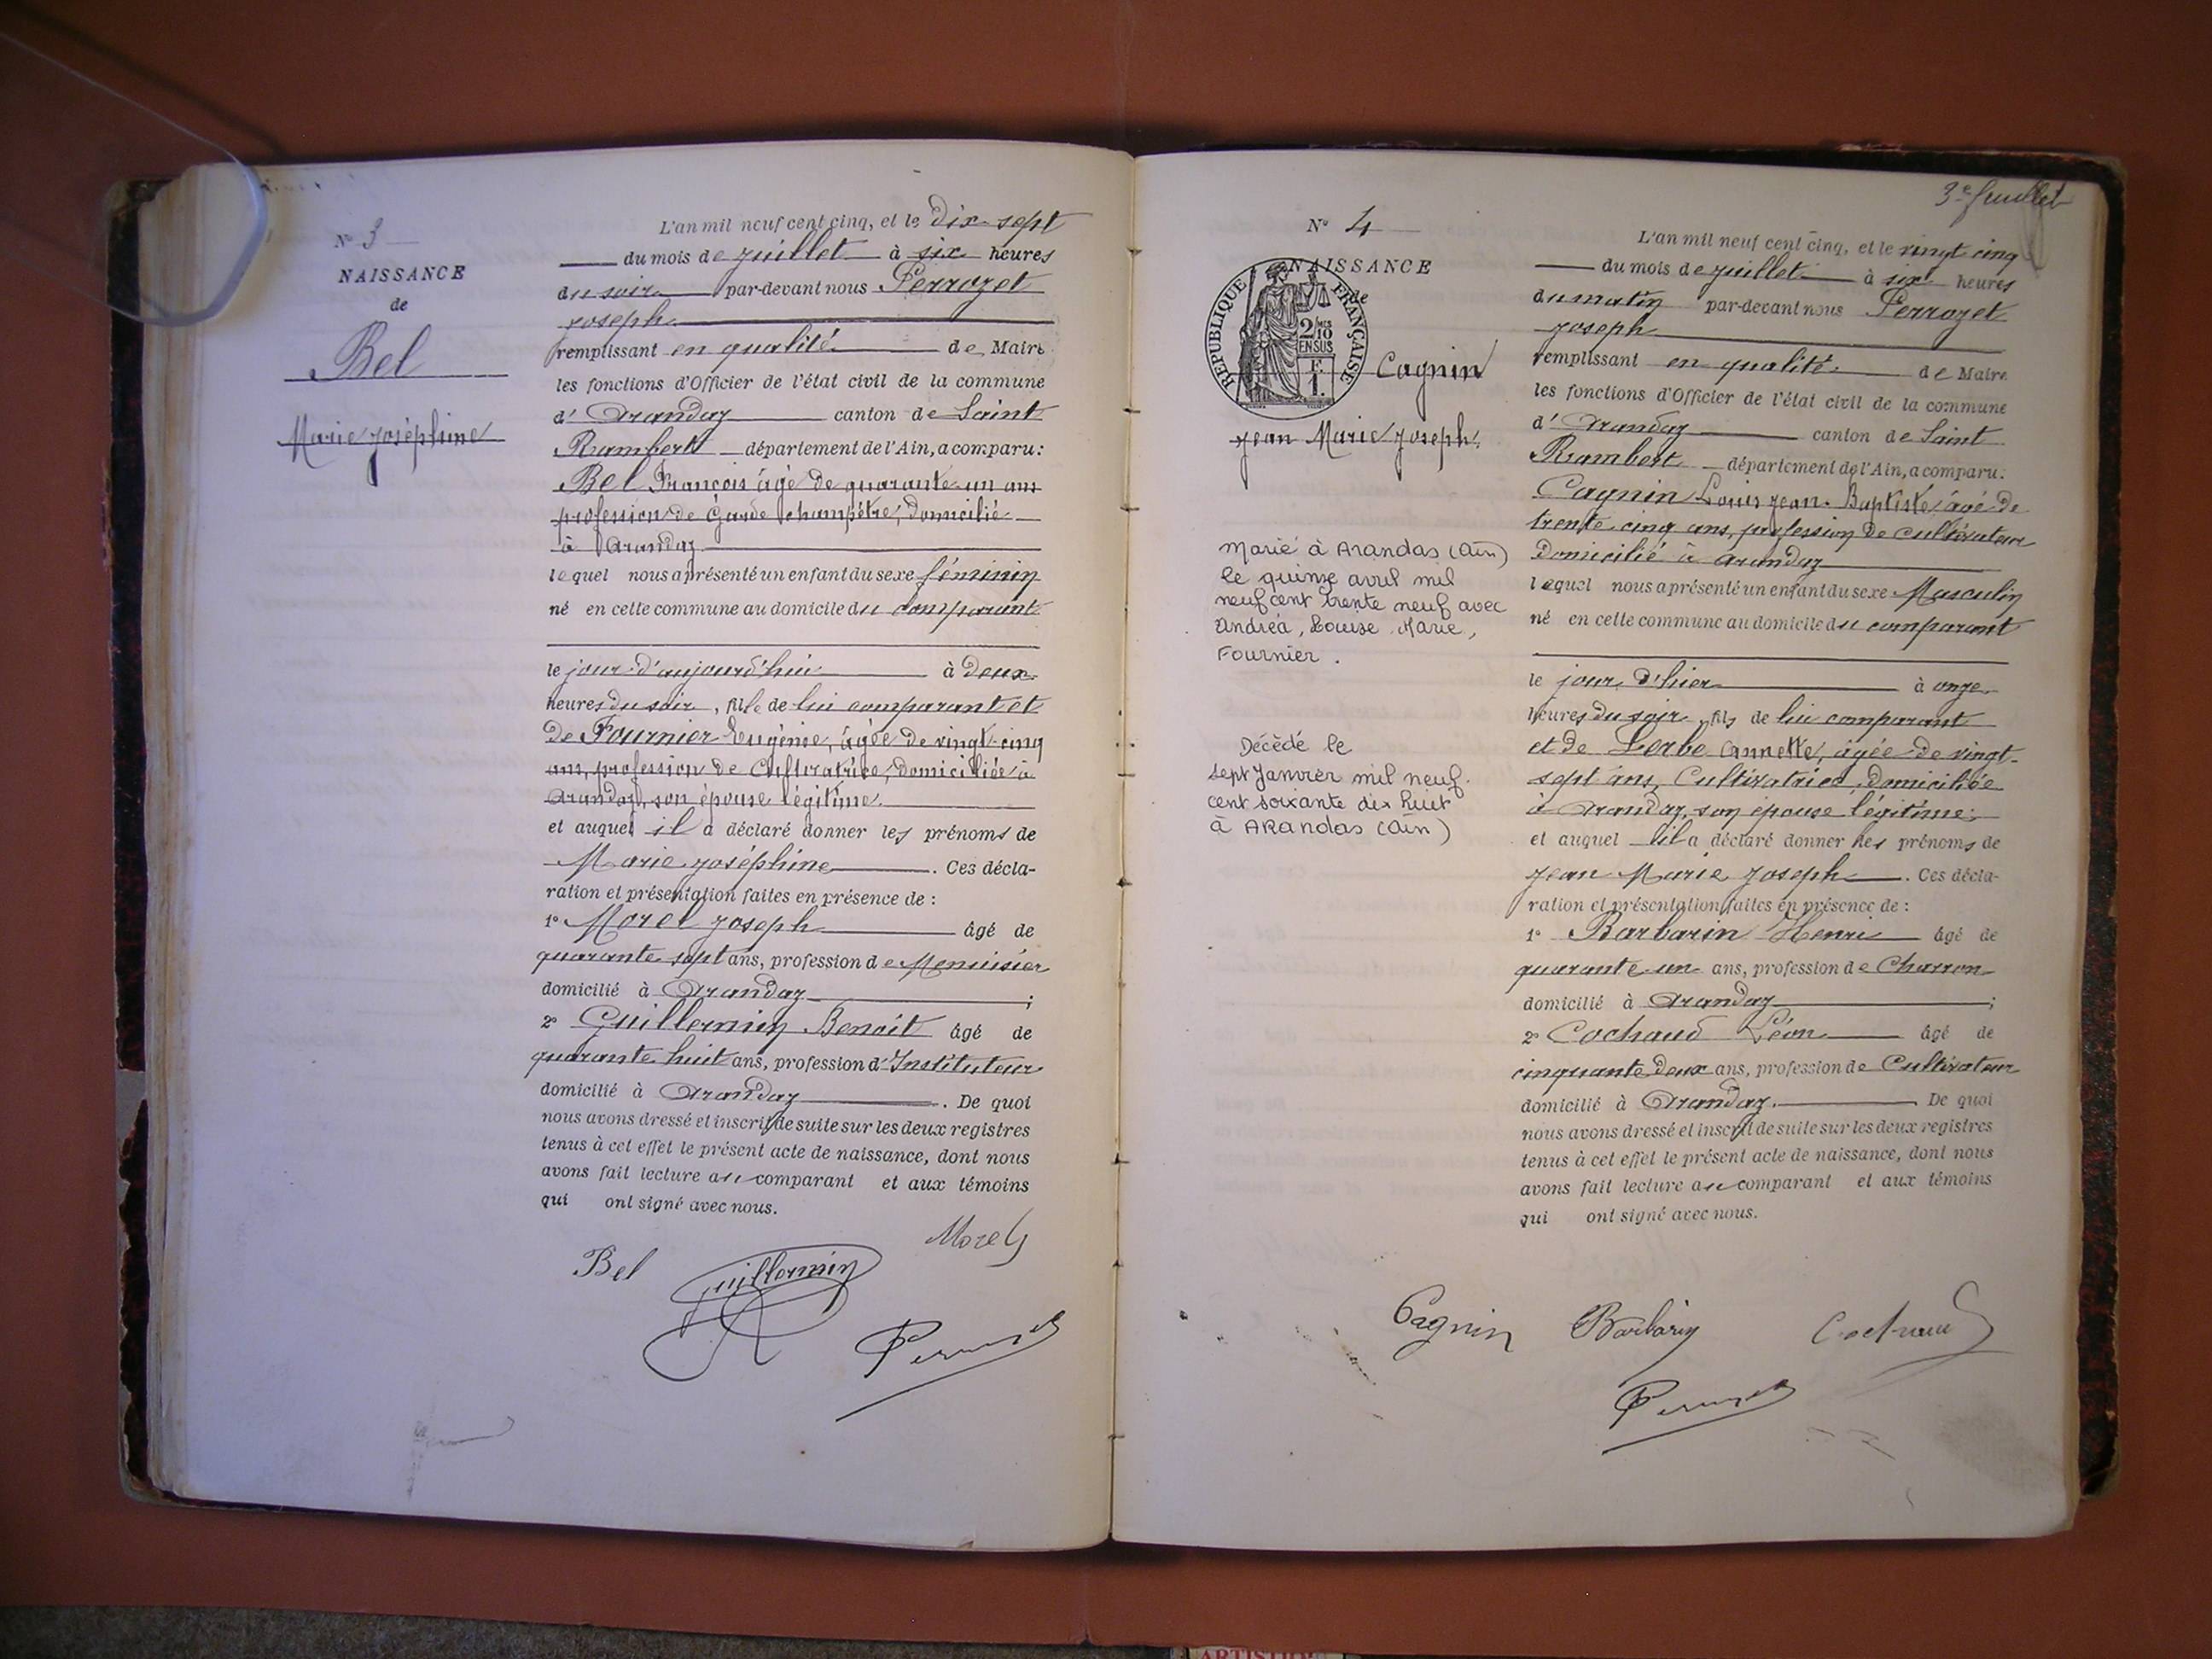 N° 3
NAISSANCE
de
Bel
Marie Joséphine
L'an mil neuf cent cinq, et le dix-sept
du mois de juillet à six heures
du soir par-devant nous Perrozet
Joseph
remplissant en qualité de Maire
les fonctions d'Officier de l'état civil de la commune
d'Arandaz canton de Saint
Rambert département de l'Ain, a comparu:
Bel François âgé de quarante-un ans
profession de Garde champêtre, domicilié
à Arandaz
lequel nous a présenté un enfant du sexe féminin
né en cette commune au domicile du comparant
le jour d'aujourd'hui à deux
heures du soir, fille de lui comparant et
de Fournier Eugénie, âgée de vingt-cinq
ans, profession de Cultivatrice, domiciliée à
Arandaz, son épouse légitime.
et auquel il a déclaré donner les prénoms de
Marie Joséphine. Ces décla-
ration et présentation faites en présence de :
1° Morel Joseph âgé de
quarante sept ans, profession de Menuisier
domicilié à Arandaz ;
2° Guillermin Benoit âgé de
quarante huit ans, profession d'Instituteur
domicilié à Arandaz. De quoi
nous avons dressé et inscrit de suite sur les deux registres
tenus à cet effet le présent acte de naissance, dont nous
avons fait lecture au comparant et aux témoins
qui ont signé avec nous.
Morel
Bel
Guillermin
Perrozet
3e feuillet
N° 4
NAISSANCE
de
RÉPUBLIQUE FRANÇAISE
2/10MES
EN SUS
1F
Cagnin
Jean Marie Joseph
Marié à Arandas (Ain)
le quinze avril mil
neuf cent trente neuf avec
Andréa, Louise, Marie,
Fournier.
Décédé le
sept Janvier mil neuf
cent soixante dix huit
à Arandas (Ain)
L'an mil neuf cent cinq, et le vingt cinq
du mois de juillet à six heures
du matin par-devant nous Perrozet
Joseph
remplissant en qualité de Maire
les fonctions d'Officier de l'état civil de la commune
d'Arandaz canton de Saint
Rambert département de l'Ain, a comparu:
Cagnin Louis Jean-Baptiste, âgé de
trente cinq ans, profession de cultivateur
domicilié à Arandaz
lequel nous a présenté un enfant du sexe Masculin
né en cette commune au domicile du comparant
le jour d'hier à onze
heures du soir, fils de lui comparant
et de Lerbe Annette, âgée de vingt-
sept ans, Cultivatrice, domiciliée
à Arandaz, son épouse légitime;
et auquel il a déclaré donner les prénoms de
Jean Marie Joseph. Ces décla-
ration et présentation faites en présence de :
1° Barbarin Henri âgé de
quarante-un ans, profession de Charron
domicilié à Arandaz ;
2° Cochaud Léon âgé de
cinquante deux ans, profession de Cultivateur
domicilié à Arandaz. De quoi
nous avons dressé et inscrit de suite sur les deux registres
tenus à cet effet le présent acte de naissance, dont nous
avons fait lecture au comparant et aux témoins
qui ont signé avec nous.
Cagnin Barbarin Cochaud
Perrozet